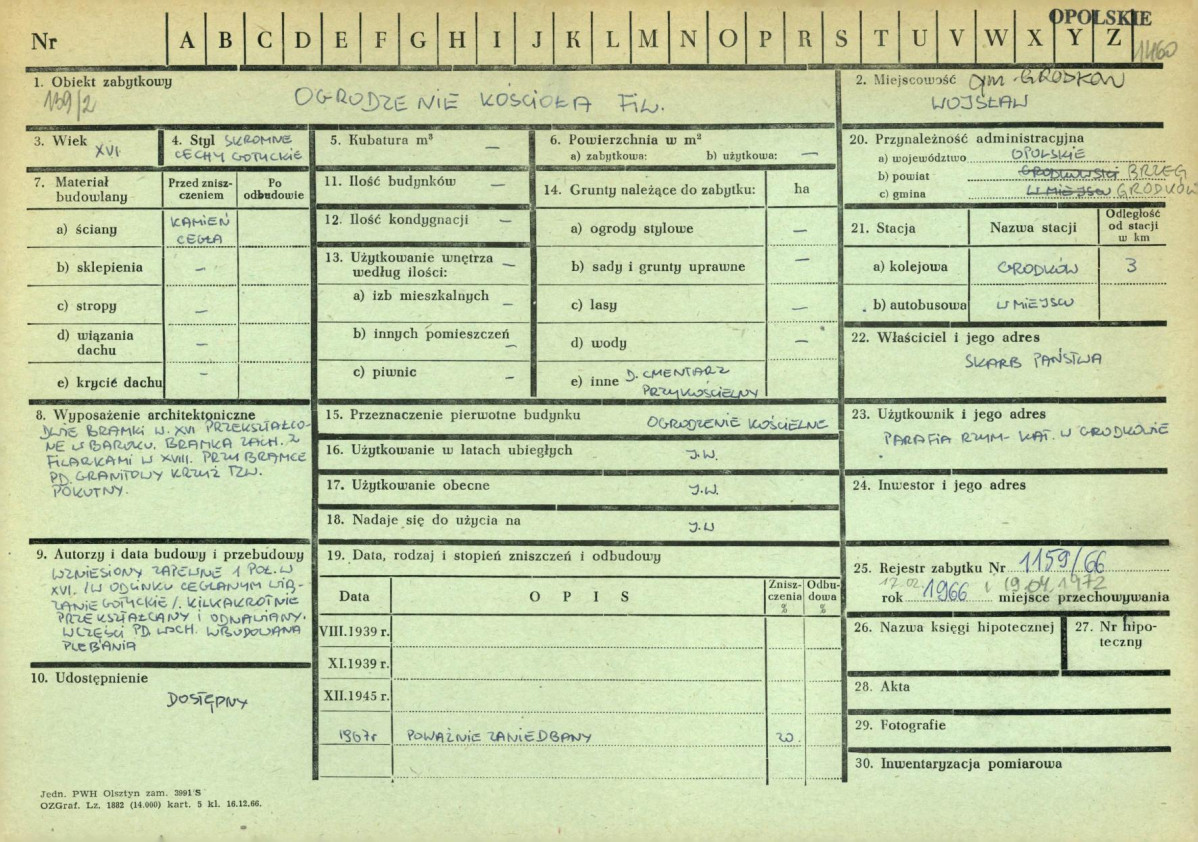 OPOLSKIE
Nr A B C D E F G H I J K L M N O P R S T U V W X Y Z
1460
1. Obiekt zabytkowy
139/2
OGRODZENIE KOŚCIOŁA FIL.
2. Miejscowość gm. GRODKÓW
WOJSŁAW
3. Wiek
XVI
4. Styl SKROMNE
CECHY GOTYCKIE
5. Kubatura m³ —
6. Powierzchnia w m²
a) zabytkowa: b) użytkowa: —
20. Przynależność administracyjna
a) województwo OPOLSKIE
b) powiat GRODKOWSKI BRZEG
c) gmina W MIEJSCU GRODKÓW
7. Materiał
budowlany
Przed znisz-
czeniem
Po
odbudowie
a) ściany KAMIEŃ
CEGŁA
b) sklepienia —
c) stropy —
d) wiązania
dachu —
e) krycie dachu —
11. Ilość budynków —
12. Ilość kondygnacji —
13. Użytkowanie wnętrza
według ilości: —
a) izb mieszkalnych —
b) innych pomieszczeń —
c) piwnic —
14. Grunty należące do zabytku: ha
a) ogrody stylowe —
b) sady i grunty uprawne —
c) lasy —
d) wody —
e) inne D. CMENTARZ
PRZYKOŚCIELNY
21. Stacja Nazwa stacji
Odległość
od stacji
w km
a) kolejowa GRODKÓW 3
b) autobusowa W MIEJSCU
22. Właściciel i jego adres
SKARB PAŃSTWA
8. Wyposażenie architektoniczne
DWIE BRAMKI W. XVI PRZEKSZTAŁCO-
NE W BAROKU. BRAMKA ZACH. Z
FILARKAMI W XVIII. PRZY BRAMCE
PD. GRANITOWY KRZYŻ TZW.
POKUTNY.
15. Przeznaczenie pierwotne budynku OGRODZENIE KOŚCIELNE
16. Użytkowanie w latach ubiegłych J.W.
17. Użytkowanie obecne J.W.
18. Nadaje się do użycia na J.W
23. Użytkownik i jego adres
PARAFIA RZYM-KAT. W GRODKOWIE
24. Inwestor i jego adres
9. Autorzy i data budowy i przebudowy
WZNIESIONY ZAPEWNE 1 POŁ. W
XVI. /W ODCINKU CEGLANYM WIĄ-
ZANIE GOTYCKIE/. KILKAKROTNIE
PRZEKSZTAŁCANY I ODNAWIANY.
W CZĘŚCI PD. WSCH. WBUDOWANA
PLEBANIA
10. Udostępnienie
DOSTĘPNY
19. Data, rodzaj i stopień zniszczeń i odbudowy
Data O P I S
Znisz-
czenia
%
Odbu-
dowa
%
VIII.1939 r.
XI.1939 r.
XII.1945 r.
1967r POWAŻNIE ZANIEDBANY 20
25. Rejestr zabytku Nr 1159/66
12.02. i 19.04.1972
rok 1966 miejsce przechowywania
26. Nazwa księgi hipotecznej
27. Nr hipo-
teczny
28. Akta
29. Fotografie
30. Inwentaryzacja pomiarowa
Jedn. PWH Olsztyn zam. 3991 S
OZGraf. Lz. 1882 (14.000) kart. 5 kl. 16.12.66.